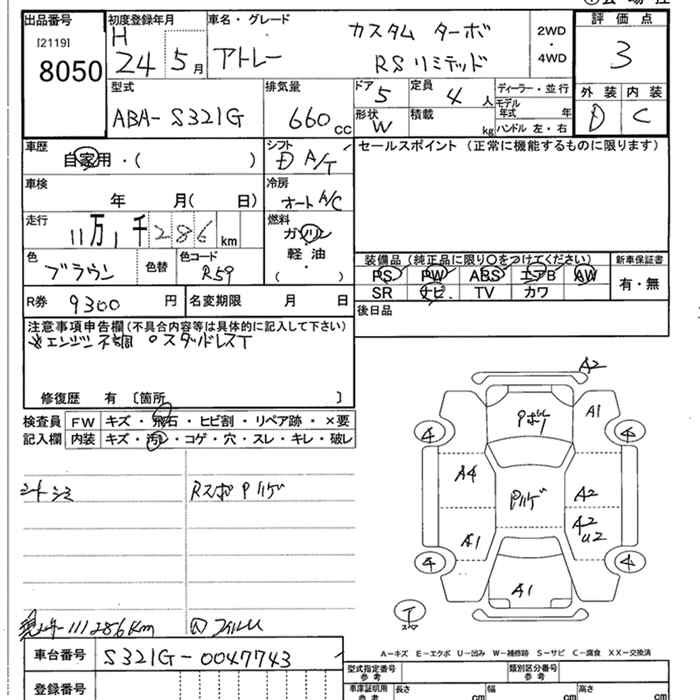 出品番号
[2119]
8050
初度登録年月
H
24 5月
車名・グレード
カスタム ターボ
アトレー RSリミテッド
2WD
・
4WD
評価点
3
外装 内装
D C
型式
ABA-S321G
排気量
660 cc
ドア 5
定員 4 人
形状 W
積載 kg
ディーラー・並行
モデル年式 年
ハンドル 左・右
車歴
自家用・( )
シフト
D A/T
セールスポイント(正常に機能するものに限ります)
車検
年 月( 日)
冷房
オート A/C
走行
11万1千286km
燃料
ガソリン
軽油
・
( )
色
ブラウン
色替
色コード
R59
装備品(純正品に限り○をつけてください)
PS PW ABS エアB AW
SR ナビ TV カワ
新車保証書
有・無
R券 9300円
名変期限 月 日
後日品
注意事項申告欄(不具合内容等は具体的に記入して下さい)
※エンジン不調 ○スタッドレスT
修復歴 有〔箇所 〕
検査員記入欄
FW キズ・飛石・ヒビ割・リペア跡・×要
内装 キズ・汚レ・コゲ・穴・スレ・キレ・破レ
シートシミ
Rスポ Pハゲ
111286Km
A2
Pボし
A1
4 4
A4
Pハゲ
A2
A2
U2
A1
4 4
A1
T
スペア
A-キズ E-エクボ U-凹み W-補修跡 S-サビ C-腐食 XX-交換済
車台番号 S321G-0047743
登録番号
型式指定番号
参考
類別区分番号
参考
車庫証明用
参考
長さ cm
幅 cm
高さ cm